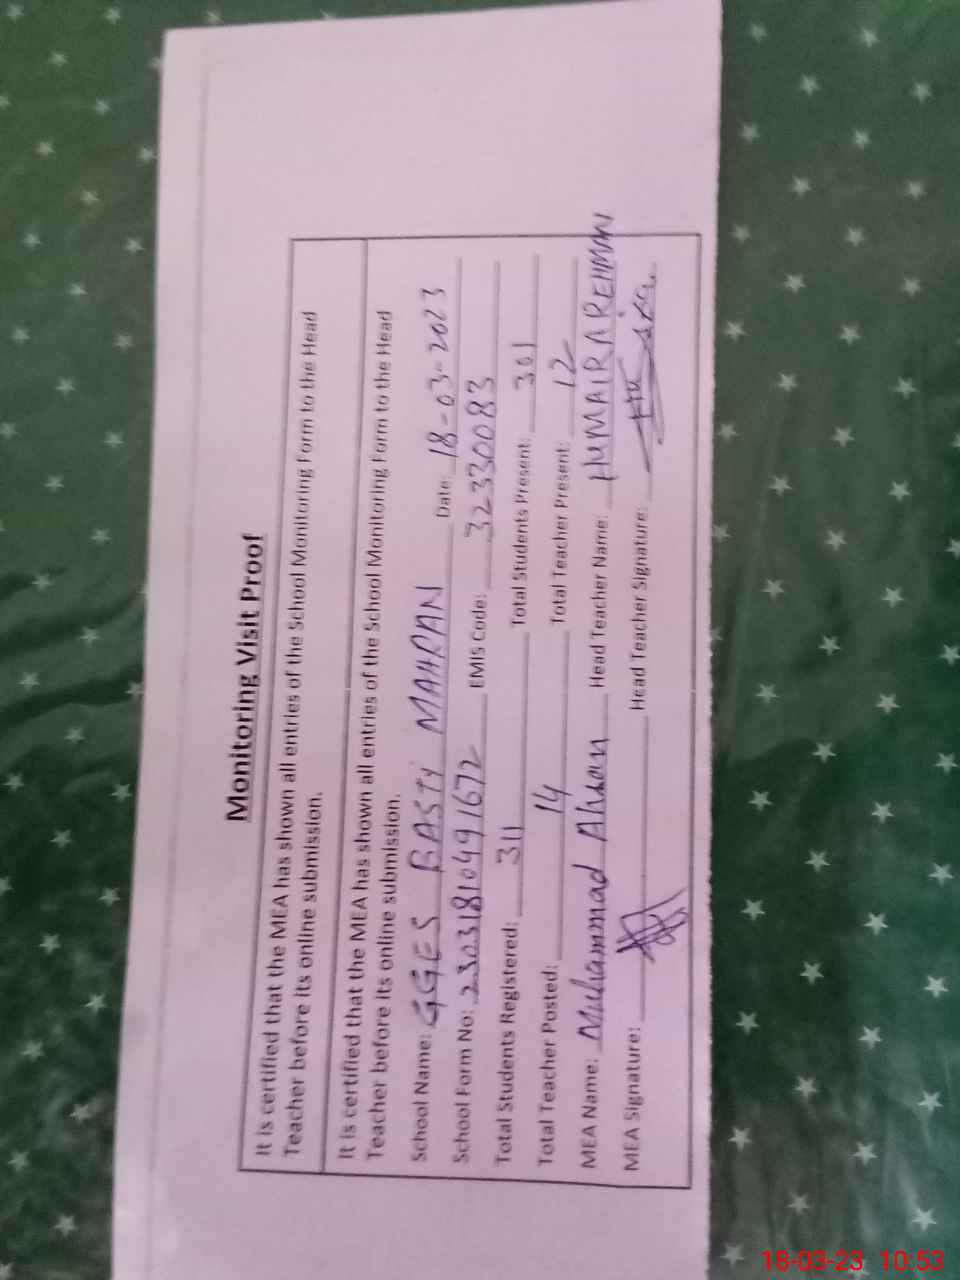 Monitoring Visit Proof
It is certified that the MEA has shown all entries of the School Monitoring Form to the Head
Teacher before its online submission.
It is certified that the MEA has shown all entries of the School Monitoring Form to the Head
Teacher before its online submission.
School Name: GGES BASTI MAHRAN Date: 18-03-2023
School Form No: 23031810491672 EMIS Code: 32330083
Total Students Registered: 311 Total Students Present: 301
Total Teacher Posted: 14 Total Teacher Present: 12
MEA Name: Muhammad Ahsan Head Teacher Name: HUMAIRA REHMAN
MEA Signature: Head Teacher Signature:
18-03-23 10:53